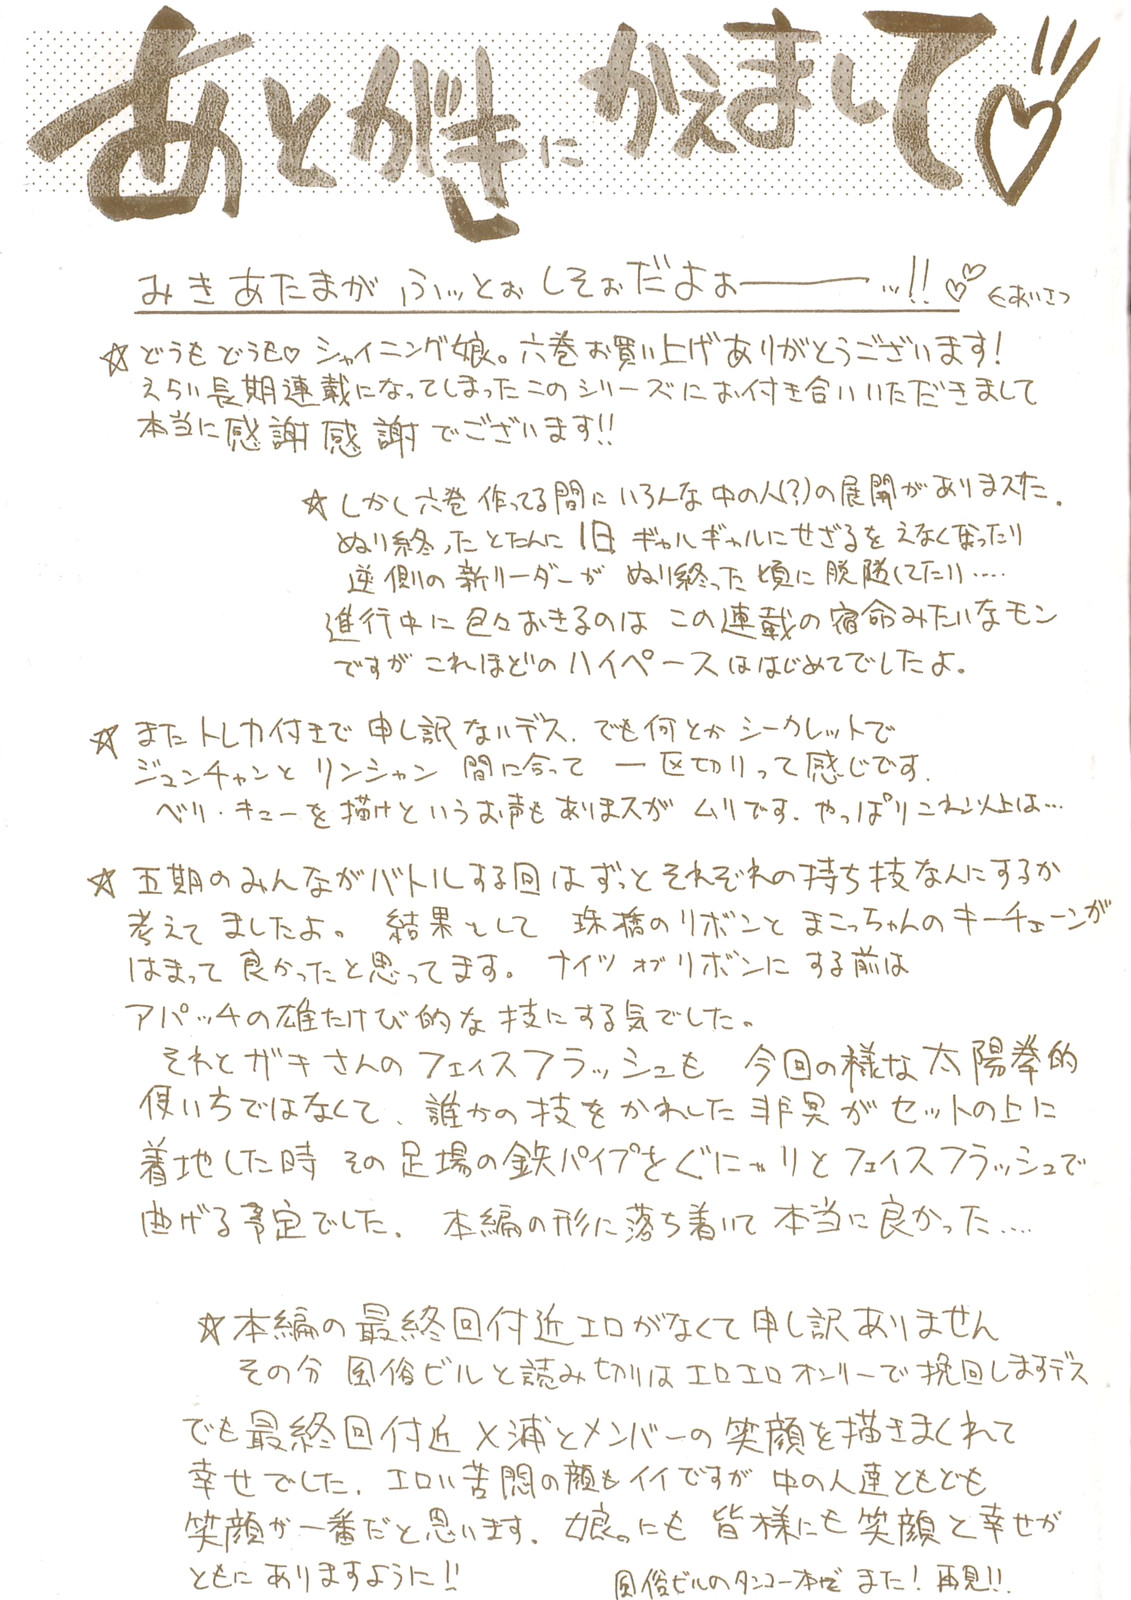 あとがきにかえまして♡
みきあたまが ふぃっとぉ しそぉだよぉー…!!♡♡ ←あいさつ
☆どうもどうも♡ シャイニング娘。六巻お買い上げありがとうございます!
えらい長期連載になってしまったこのシリーズにお付き合いいただきまして
本当に感謝感謝でございます!!
☆しかし六巻作ってる間にいろんな中の人(?)の展開がありました.
ぬり終ったとたんに1日 ギャルギャルにせざるをえなくなったり
逆側の新リーダーが ぬり終った頃に脱隊してたり‥‥
進行中に色々おきるのは この連載の宿命みたいなモン
ですが これほどのハイペースははじめてでしたよ。
☆またトレカ付きで 申し訳ないデス. でも何とかシークレットで
ジュンチャンとリンシャン 間に合って 一区切りって感じです.
ベリ・キューを描けというお声もありまスが ムリです. やっぱりこれ以上は…
☆五期のみんながバトルする回はずっとそれぞれの持ち技なんにするか
考えてましたよ。 結果として 珠橋のリボンとまこっちゃんのキーチェーンが
はまって良かったと思ってます。 ナイツオブリボンにする前は
アパッチの雄たけび的な技にする気でした。
それとガキさんのフェイスフラッシュも 今回の様な太陽拳的
使いちではなくて、誰かの技をかわした非冥がセットの上に
着地した時 その足場の鉄パイプをぐにゃりとフェイスフラッシュで
曲げる予定でした. 本編の形に落ち着いて本当に良かった‥‥
☆本編の最終回付近エロがなくて申し訳ありません
その分 風俗ビルと読み切りはエロエロオンリーで挽回しますデス
でも最終回付近 メ浦とメンバーの笑顔を描きまくれて
幸せでした. エロい苦悶の顔もイイですが 中の人達ともども
笑顔が一番だと思います. 娘。にも 皆様にも笑顔と幸せが
ともにありますように!!
風俗ビルのタンコー本でまた! 再見!!.